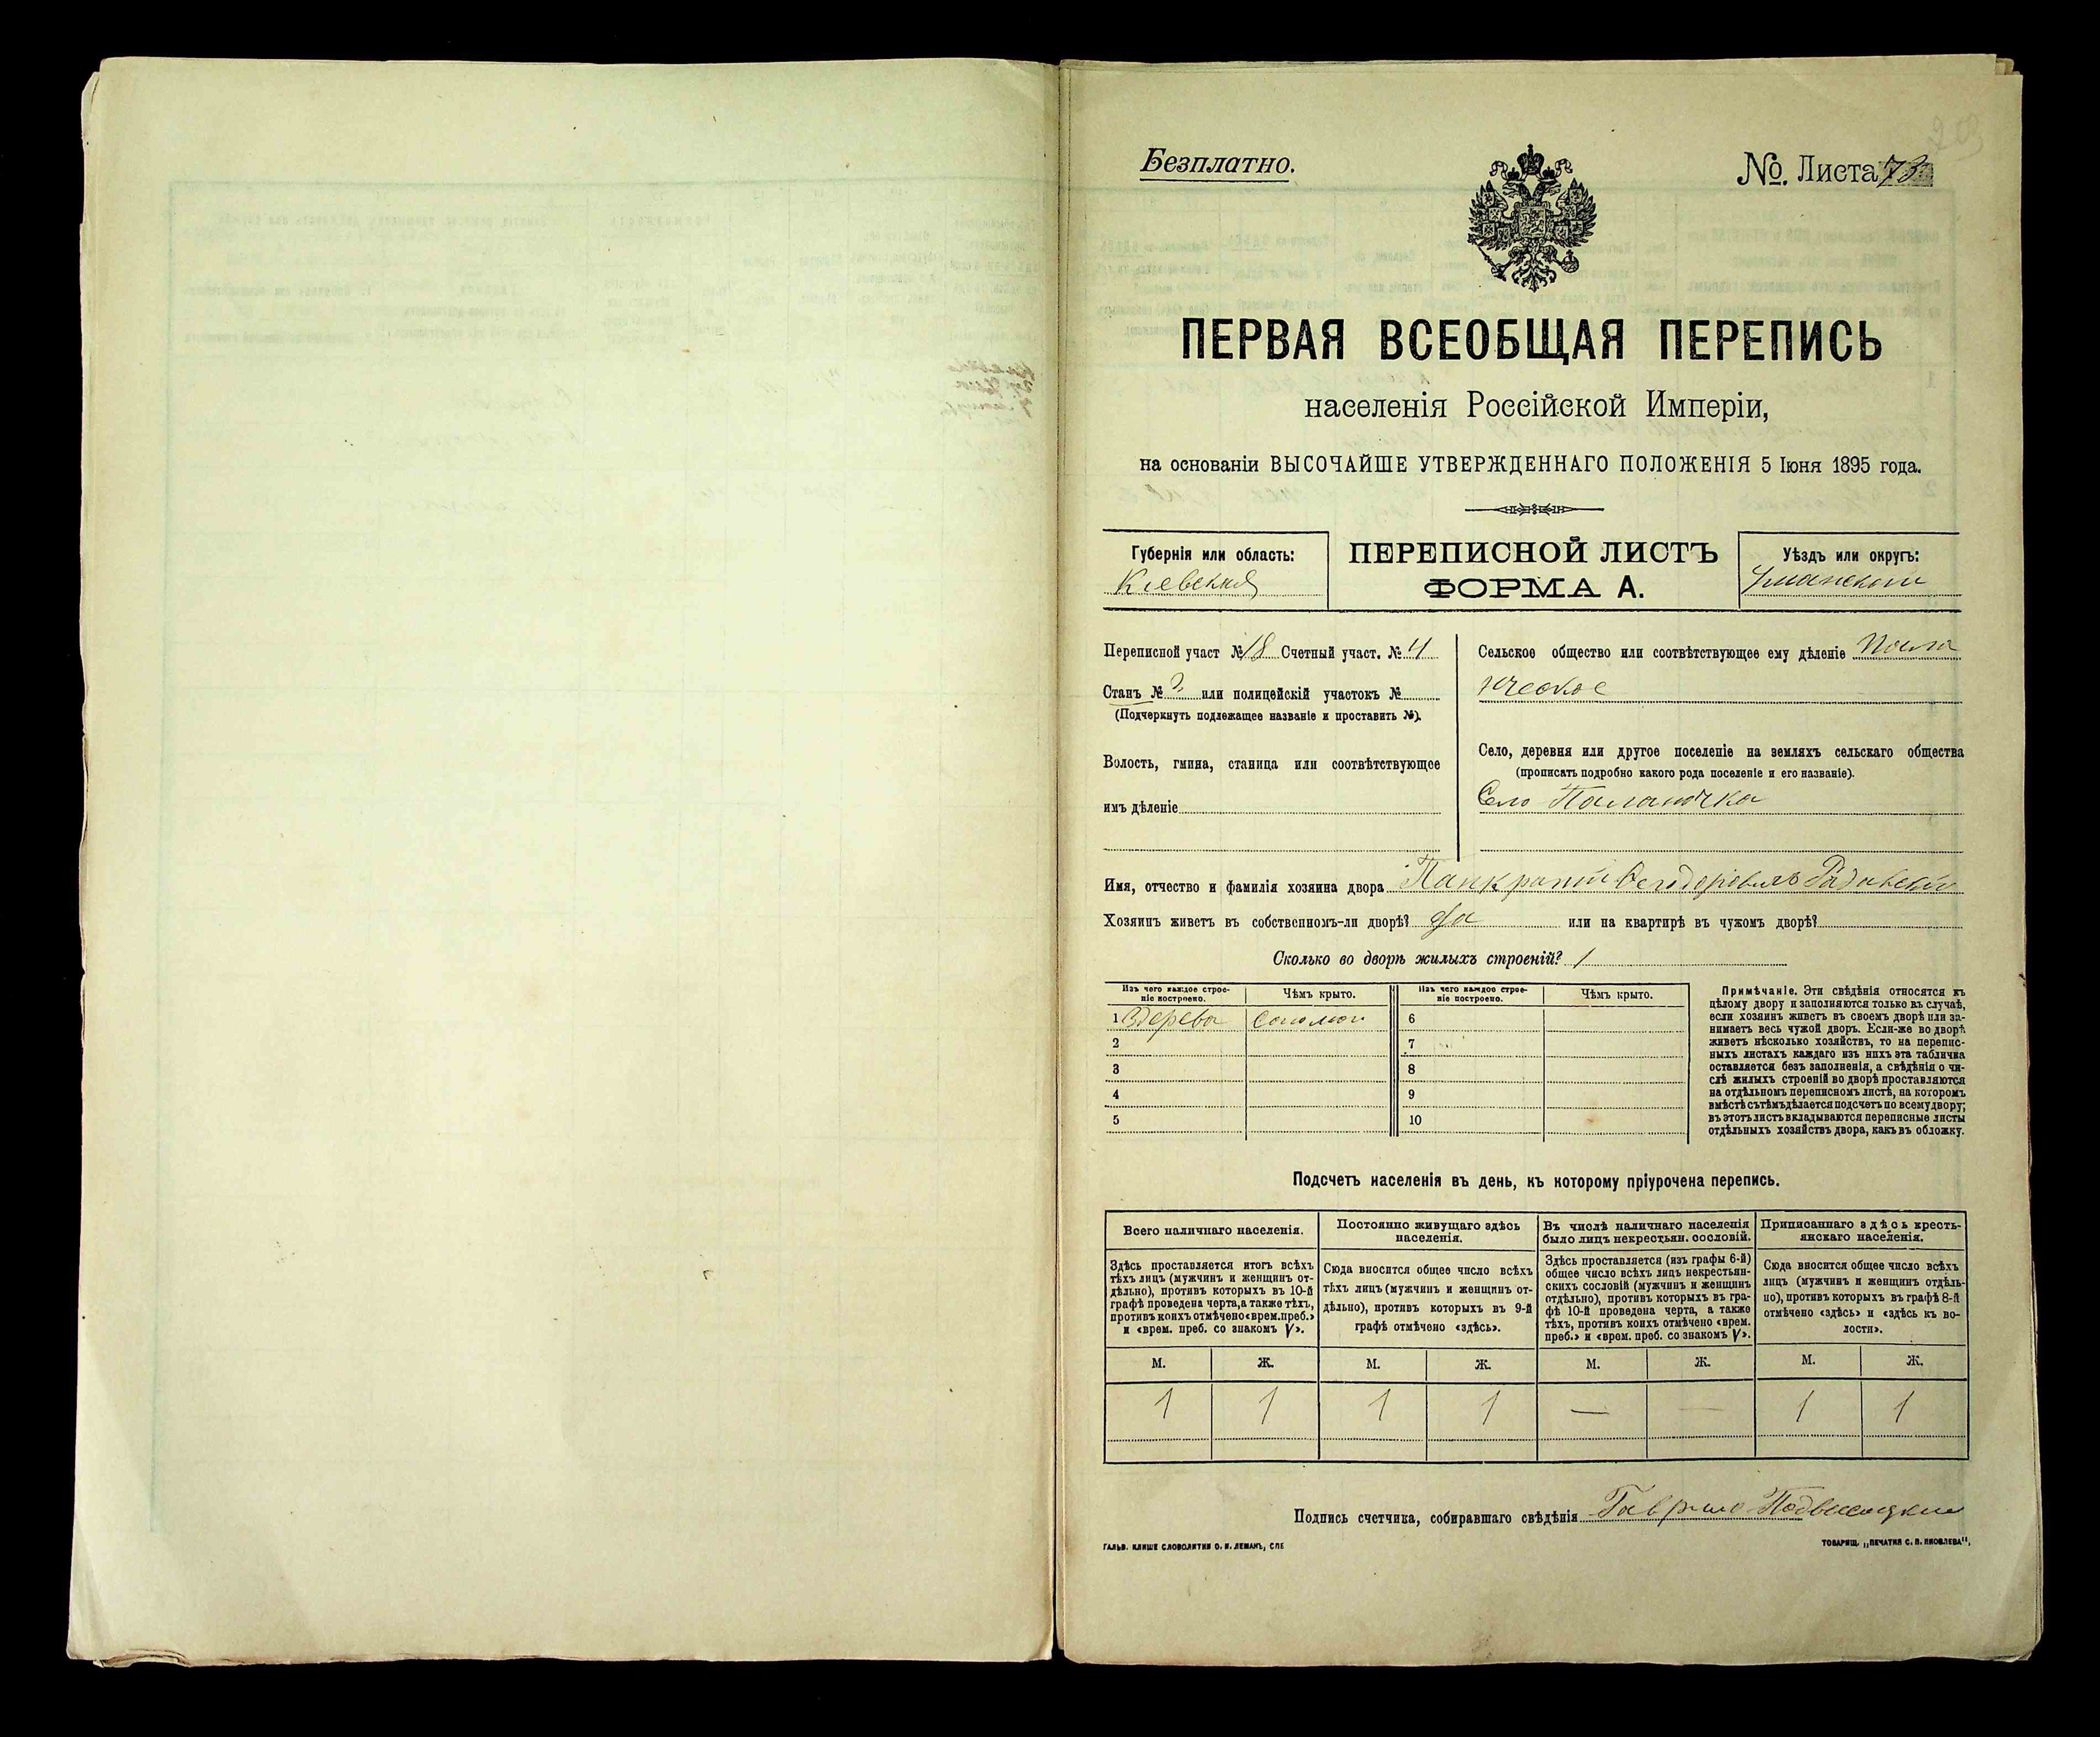 Безплатно.
№. Листа 73
ПЕРВАЯ ВСЕОБЩАЯ ПЕРЕПИСЬ
населенія Россійской Имперіи,
на основаніи ВЫСОЧАЙШЕ УТВЕРЖДЕННАГО ПОЛОЖЕНІЯ 5 Іюня 1895 года.
Губернія или область:
Кіевская
ПЕРЕПИСНОЙ ЛИСТЪ
ФОРМА А.
Уѣздъ или округъ:
Уманскій
Переписной участ № 18 Счетный участ. № 4
Станъ № или полицейскій участокъ №
(Подчеркнуть подлежащее названіе и проставить №).
Волость, гмина, станица или соотвѣтствующее
имъ дѣленіе
Сельское общество или соотвѣтствующее ему дѣленіе
Село, деревня или другое поселеніе на земляхъ сельскаго общества
(прописать подробно какого рода поселеніе и его названіе).
Село Паланочка
Имя, отчество и фамилія хозяина двора Панкратій
Хозяинъ живетъ въ собственномъ-ли дворѣ? да или на квартирѣ въ чужомъ дворѣ?
Сколько во дворѣ жилыхъ строеній? 1
Изъ чего каждое строе-
ніе построено.
Чѣмъ крыто.
Изъ чего каждое строе-
ніе построено.
Чѣмъ крыто.
1 Здерева Соломои 6
2 7
3 8
4 9
5 10
Примѣчаніе. Эти свѣдѣнія относятся къ
цѣлому двору и заполняются только въ случаѣ,
если хозяинъ живетъ въ своемъ дворѣ или за-
нимаетъ весь чужой дворъ. Если-же во дворѣ
живетъ нѣсколько хозяйствъ, то на перепис-
ныхъ листахъ каждаго изъ нихъ эта табличка
оставляется безъ заполненія, а свѣдѣнія о чи-
слѣ жилыхъ строеній во дворѣ проставляются
на отдѣльномъ переписномъ листѣ, на которомъ
вмѣстѣ съ тѣмъ дѣлается подсчетъ по всему двору;
въ этотъ листъ вкладываются переписные листы
отдѣльныхъ хозяйствъ двора, какъ въ обложку.
Подсчетъ населенія въ день, къ которому пріурочена перепись.
Всего наличнаго населенія.
Здѣсь проставляется итогъ всѣхъ
тѣхъ лицъ (мужчинъ и женщинъ от-
дѣльно), противъ которыхъ въ 10-й
графѣ проведена черта, а также тѣхъ,
противъ коихъ отмѣчено «врем. преб.»
и «врем. преб. со знакомъ V».
Постоянно живущаго здѣсь
населенія.
Сюда вносится общее число всѣхъ
тѣхъ лицъ (мужчинъ и женщинъ от-
дѣльно), противъ которыхъ въ 9-й
графѣ отмѣчено «здѣсь».
Въ числѣ наличнаго населенія
было лицъ некрестьян. сословій.
Здѣсь проставляется (изъ графы 6-й)
общее число всѣхъ лицъ некрестьян-
скихъ сословій (мужчинъ и женщинъ
отдѣльно), противъ которыхъ въ гра-
фѣ 10-й проведена черта, а также
тѣхъ, противъ коихъ отмѣчено «врем.
преб.» и «врем. преб. со знакомъ V».
Приписаннаго здѣсь кресть-
янскаго населенія.
Сюда вносится общее число всѣхъ
лицъ (мужчинъ и женщинъ отдѣль-
но), противъ которыхъ въ графѣ 8-й
отмѣчено «здѣсь» и «здѣсь къ во-
лости».
М. Ж. М. Ж. М. Ж. М. Ж.
1 1 1 1 — — 1 1
Подпись счетчика, собиравшаго свѣдѣнія Гаврило Подвысоцкій
ГАЛЬВ. КЛИШЕ СЛОВОЛИТНИ О. И. ЛЕМАНЪ, СПБ
ТОВАРИЩ. „ПЕЧАТНЯ С. П. ЯКОВЛЕВА".